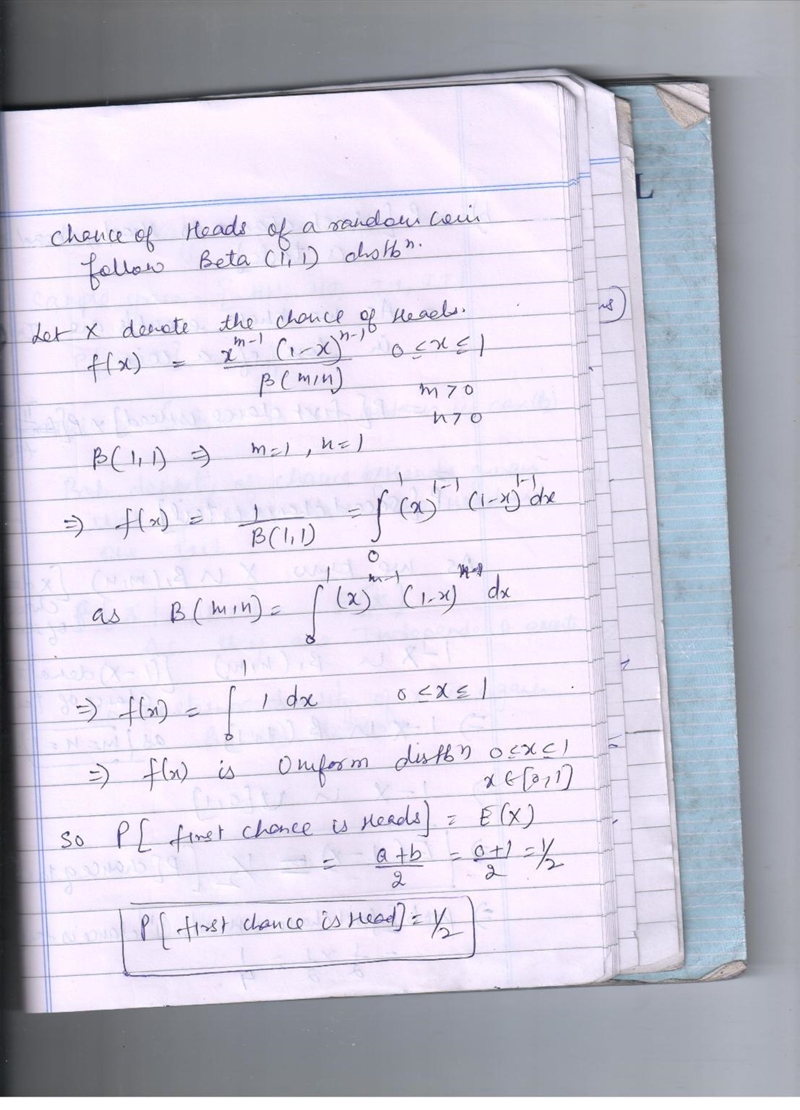 Chance of Heads of a random coin
follow Beta (1,1) distbⁿ.
Let X denote the chance of Heads.
f(x) = x^{m-1} (1-x)^{n-1} / β(m,n)   0 ≤ x ≤ 1
m > 0
n > 0
β(1,1) ⇒ m=1, n=1
⇒ f(x) = 1 / B(1,1) = ∫₀¹ (x)^{1-1} (1-x)^{1-1} dx
as B(m,n) = ∫₀¹ (x)^{m-1} (1-x)^{n-1} dx
⇒ f(x) = ∫₀¹ 1 dx   0 ≤ x ≤ 1
⇒ f(x) is Uniform distbⁿ 0 ≤ x ≤ 1
x ∈ [0,1]
So P[ first chance is Heads] = E(X)
= a+b / 2 = 0+1 / 2 = 1/2
P[ first chance is Head] = 1/2
L